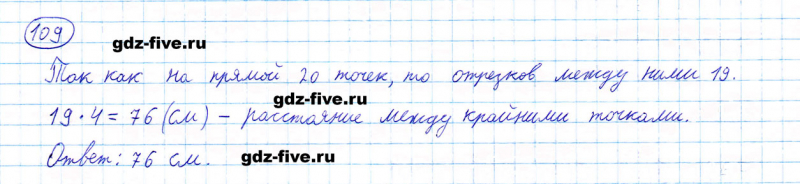 109
gdz-five.ru
Так как на прямой 20 точек, то отрезков между ними 19.
gdz-five.ru
19 · 4 = 76 (см) – расстояние между крайними точками.
Ответ: 76 см.
gdz-five.ru